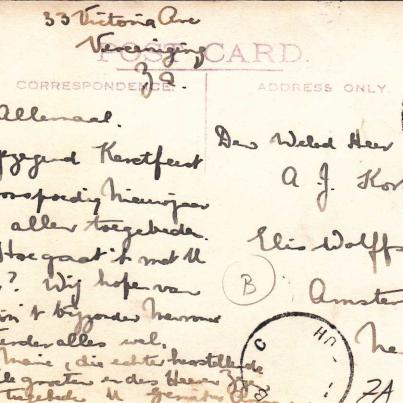 33 Victoria Ave
Vereeniging
Z.A.
POST CARD.
CORRESPONDENCE.
ADDRESS ONLY.
Allemaal.
gezegend Kerstfeest
voorspoedig Nieuwjaar
allen toegebeden.
Hoe gaat 't met U
? Wij hopen van
't bijzonder Mevrouw
verder alles wel.
Marie, die echter herstellende
groeten en des Heeren
toegebeden U
Den Weled Heer
A J. Kor
Elis Wolffs
Amster
B
ZA